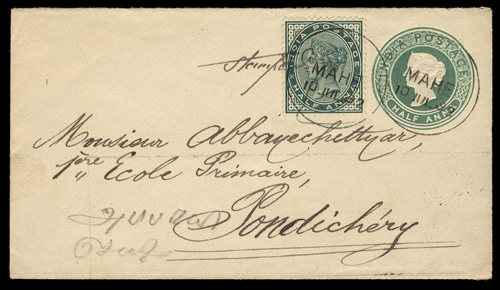 INDIA POSTAGE
HALF ANNA
MAHE
10 JU
INDIA POSTAGE
HALF ANNA
MAHE
10 JU
Monsieur Abbayechettyar,
pre Ecole Primaire,
Pondichéry